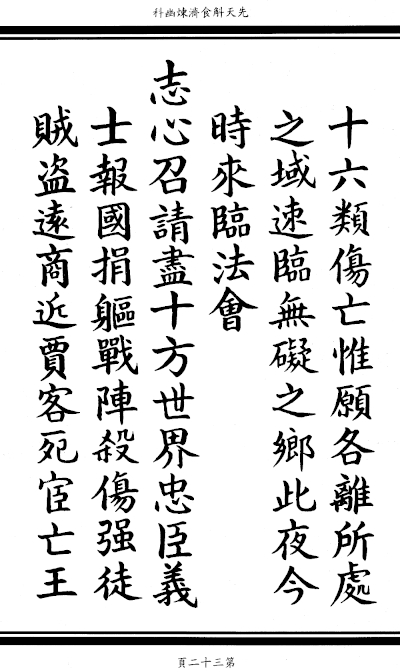 先天斛食濟煉幽科
十六類傷亡惟願各離所處
之域速臨無礙之鄉此夜今
時來臨法會
志心召請盡十方世界忠臣義
士報國捐軀戰陣殺傷强徒
賊盗遠商近賈客死宦亡王
第三十二頁